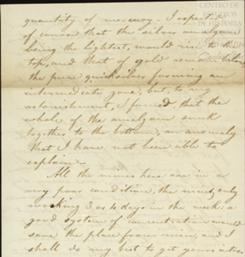 quantity of mercury. I expected
of course that the silver amalgam
being the lightest, would rise to the
top, and that of gold
the pure quicksilver forming an
intermediate zone, but, to my
astonishment, I found that the
whole of the amalgam sunk
together to the bottom, an anomaly
that I have not been able to
explain.
All the mines here are in a
very poor condition, the mines only
working 3 or 4 days in the week. A
good system of concentration
save the place from ruin and I
shall do my best to get